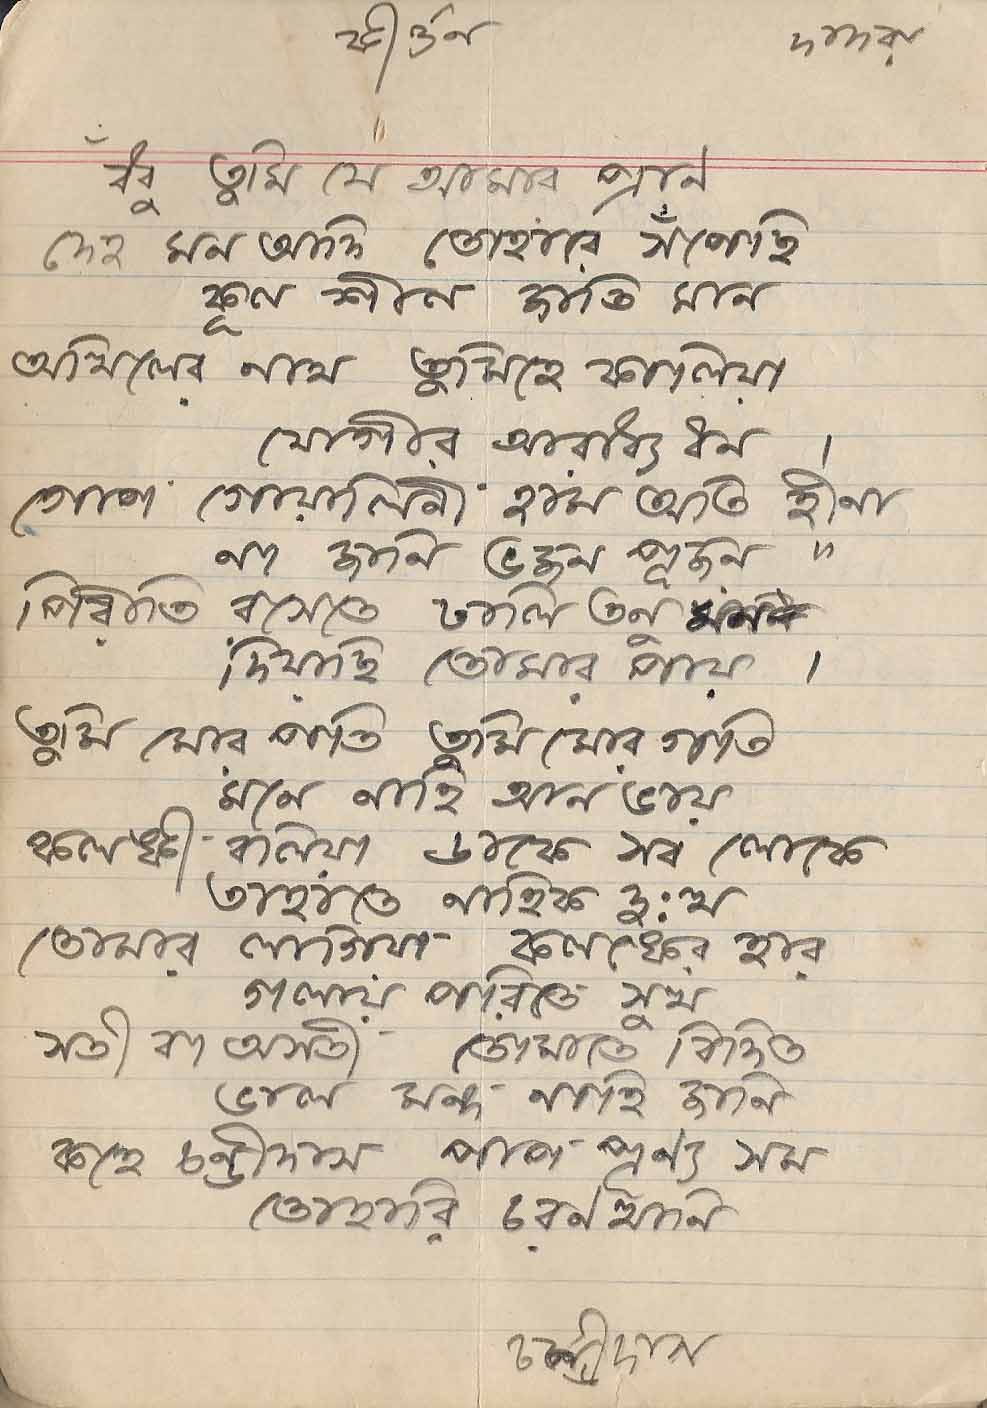 কীর্ত্তন দাদরা
বঁধু তুমি যে আমার প্রান
দেহ মন আদি তোহারে সঁপেছি
কূল শীল জাতি মান
অখিলের নাথ তুমিহে কালিয়া
যোগীর আরাধ্য ধন ।
গোপ গোয়ালিনী হাম অতি হীনা
না জানি ভজন পূজন "
পিরীতি রসেতে ঢালি তনু
দিয়াছি তোমার পায় ।
তুমি মোর পতি তুমি মোর গতি
মনে নাহি আন ভায়
কলঙ্কী বলিয়া ডাকে সব লোকে
তাহাতে নাহিক দুঃখ
তোমার লাগিয়া কলঙ্কের হার
গলায় পরিতে সুখ
সতী বা অসতী তোমাতে বিদিত
ভাল মন্দ নাহি জানি
কহে চন্ডীদাস পাপ পূণ্য সম
তোহারি চরন খানি
চন্ডীদাস